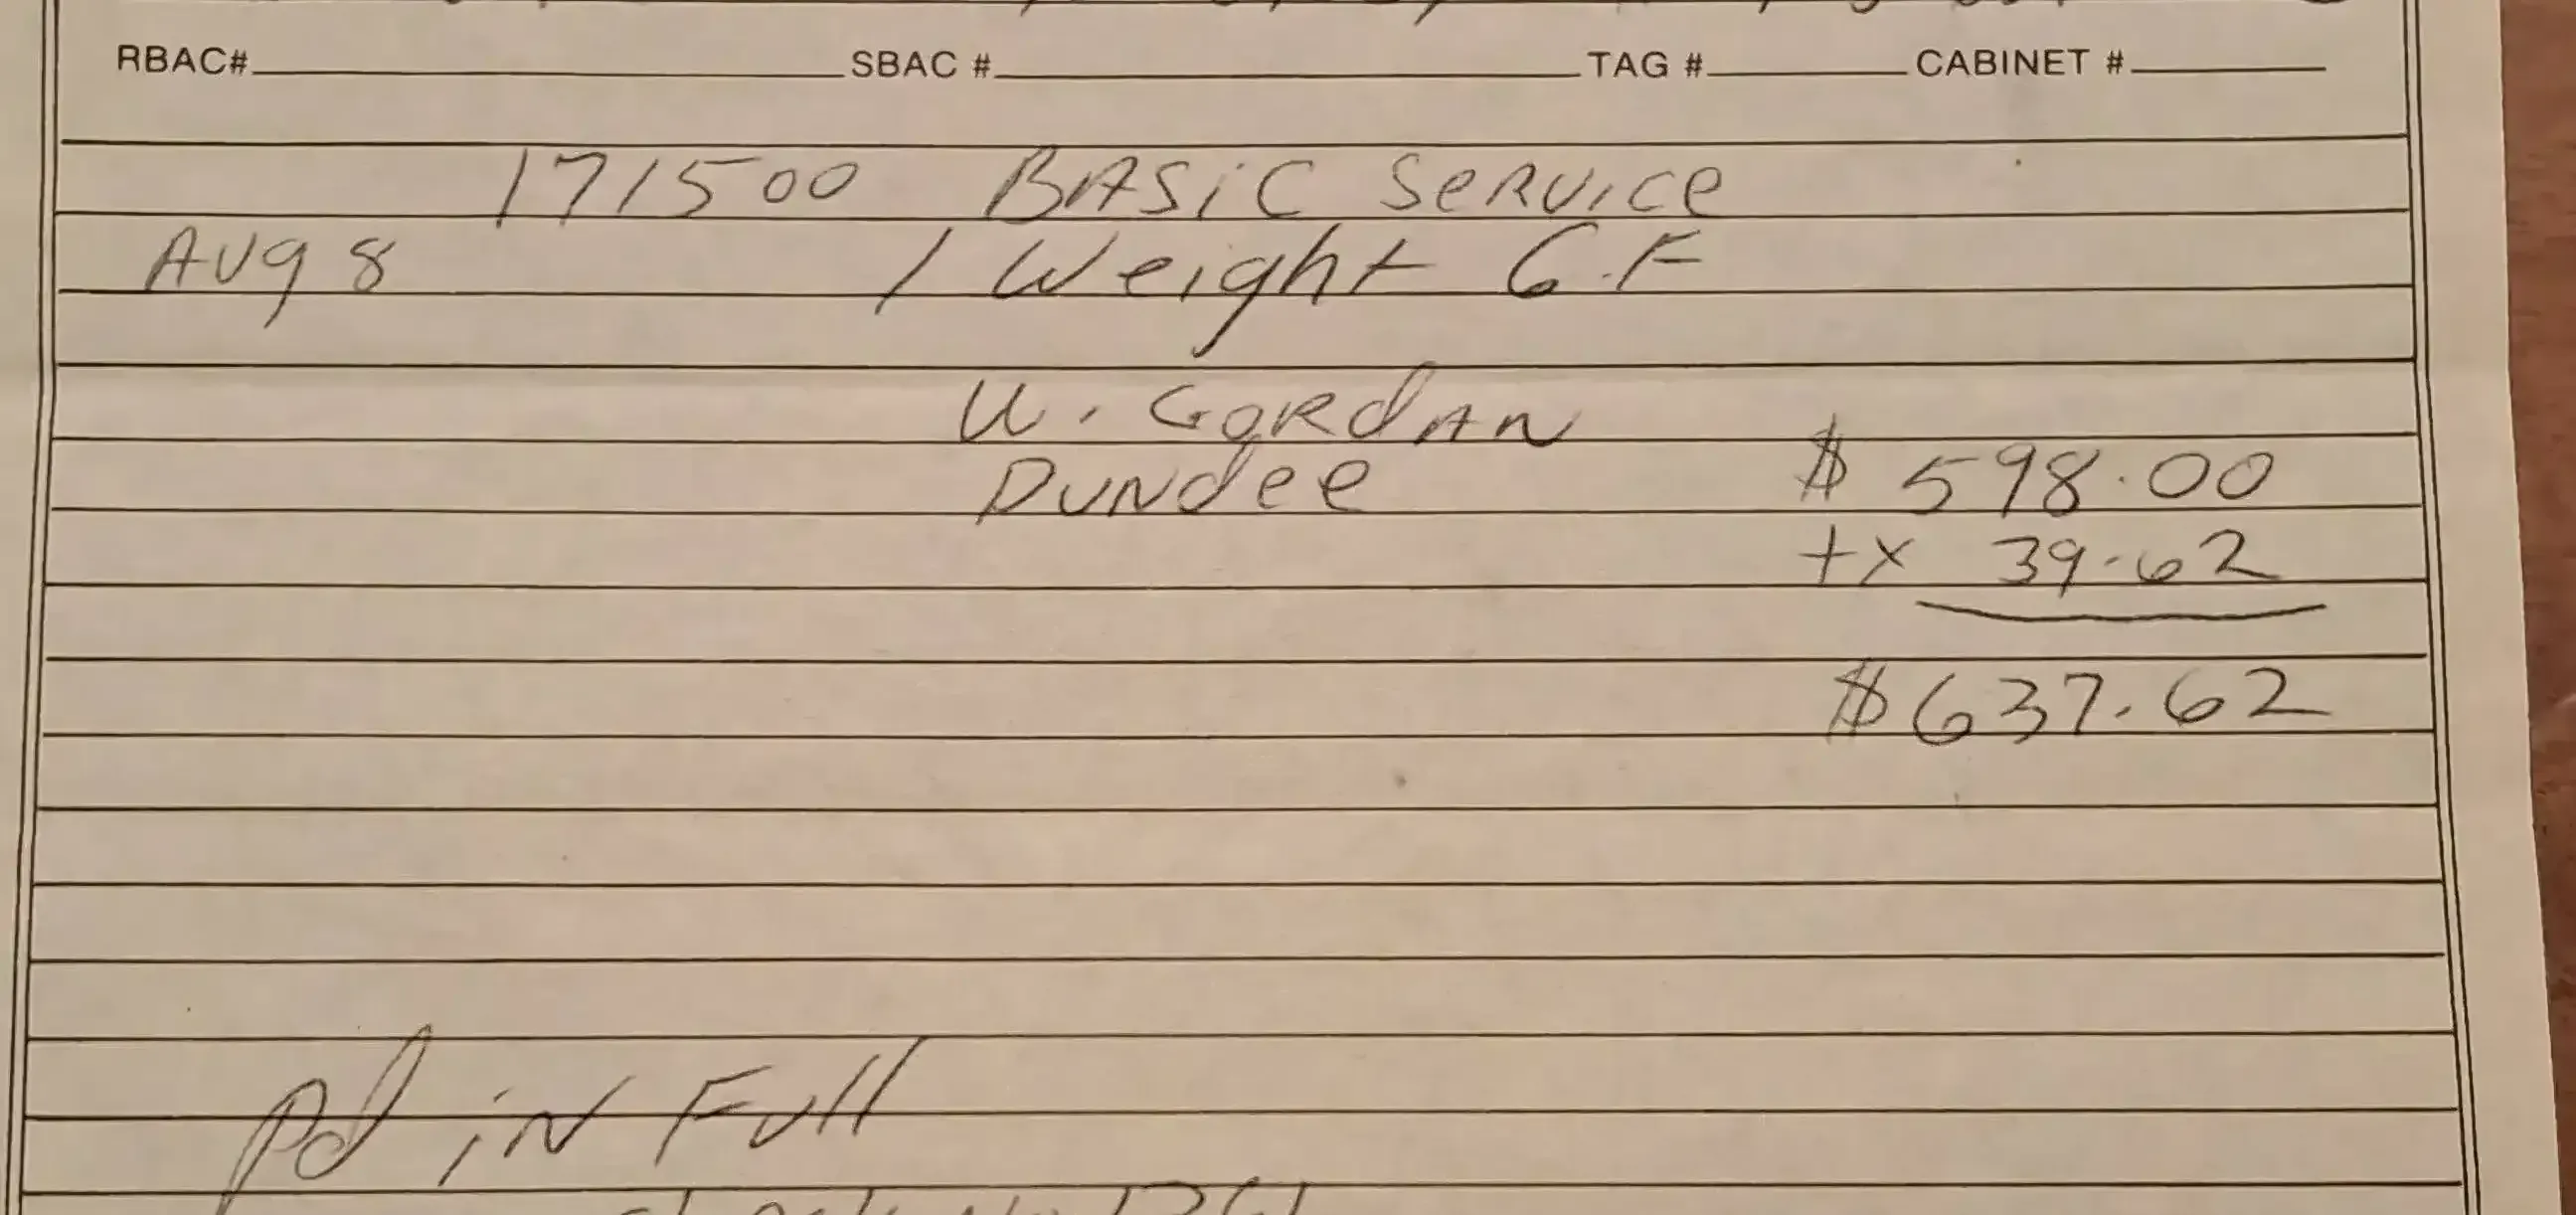 RBAC# SBAC # TAG # CABINET #
171500 BASiC SeRvice
Aug 8 1 Weight G.F
W. GORdAN
DUNdee $ 598.00
+x 39.62
$637.62
pd iN Full